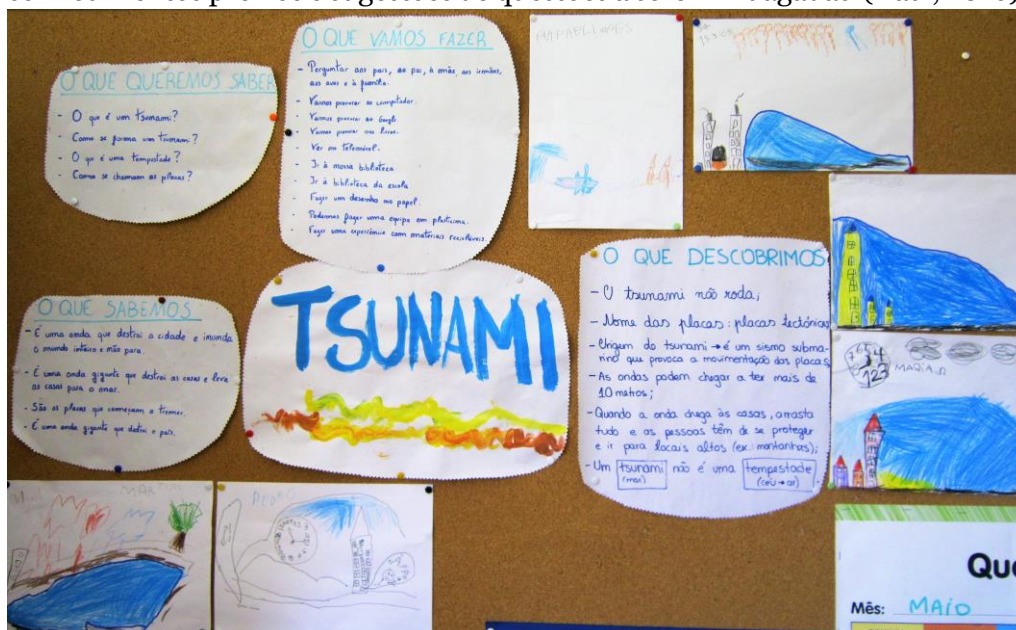 O QUE QUEREMOS SABER
- O que é um tsunami?
- Como se forma um tsunami?
- O que é uma tempestade?
- Como se chamam as placas?
O QUE VAMOS FAZER
- Perguntar aos pais, ao pai, à mãe, aos irmãos,
aos avós e à família.
- Vamos procurar no computador.
- Vamos procurar no Google
- Vamos procurar nos livros.
- Ver no telemóvel.
- Ir à nossa biblioteca
- Ir à biblioteca da escola
- Fazer um desenho no papel.
- Podemos fazer uma equipa em plasticina.
- Fazer uma experiência com materiais recicláveis.
O QUE SABEMOS
- É uma onda que destrói a cidade e inunda
o mundo inteiro e não para.
- É uma onda gigante que destrói as casas e leva
as casas para o mar.
- São as placas que começam a tremer.
- É uma onda gigante que destrói o país.
TSUNAMI
O QUE DESCOBRIMOS
- O tsunami não roda;
- Nome das placas: placas tectónicas
- Origem do tsunami → é um sismo subma-
rino que provoca a movimentação das placas
- As ondas podem chegar a ter mais de
10 metros;
- Quando a onda chega às casas, arrasta
tudo e as pessoas têm de se proteger
e ir para locais altos (ex.: montanhas);
- Um tsunami não é uma tempestade
(mar) (céu → ar)
MARIA
PEDRO
Que
Mês: MAIO